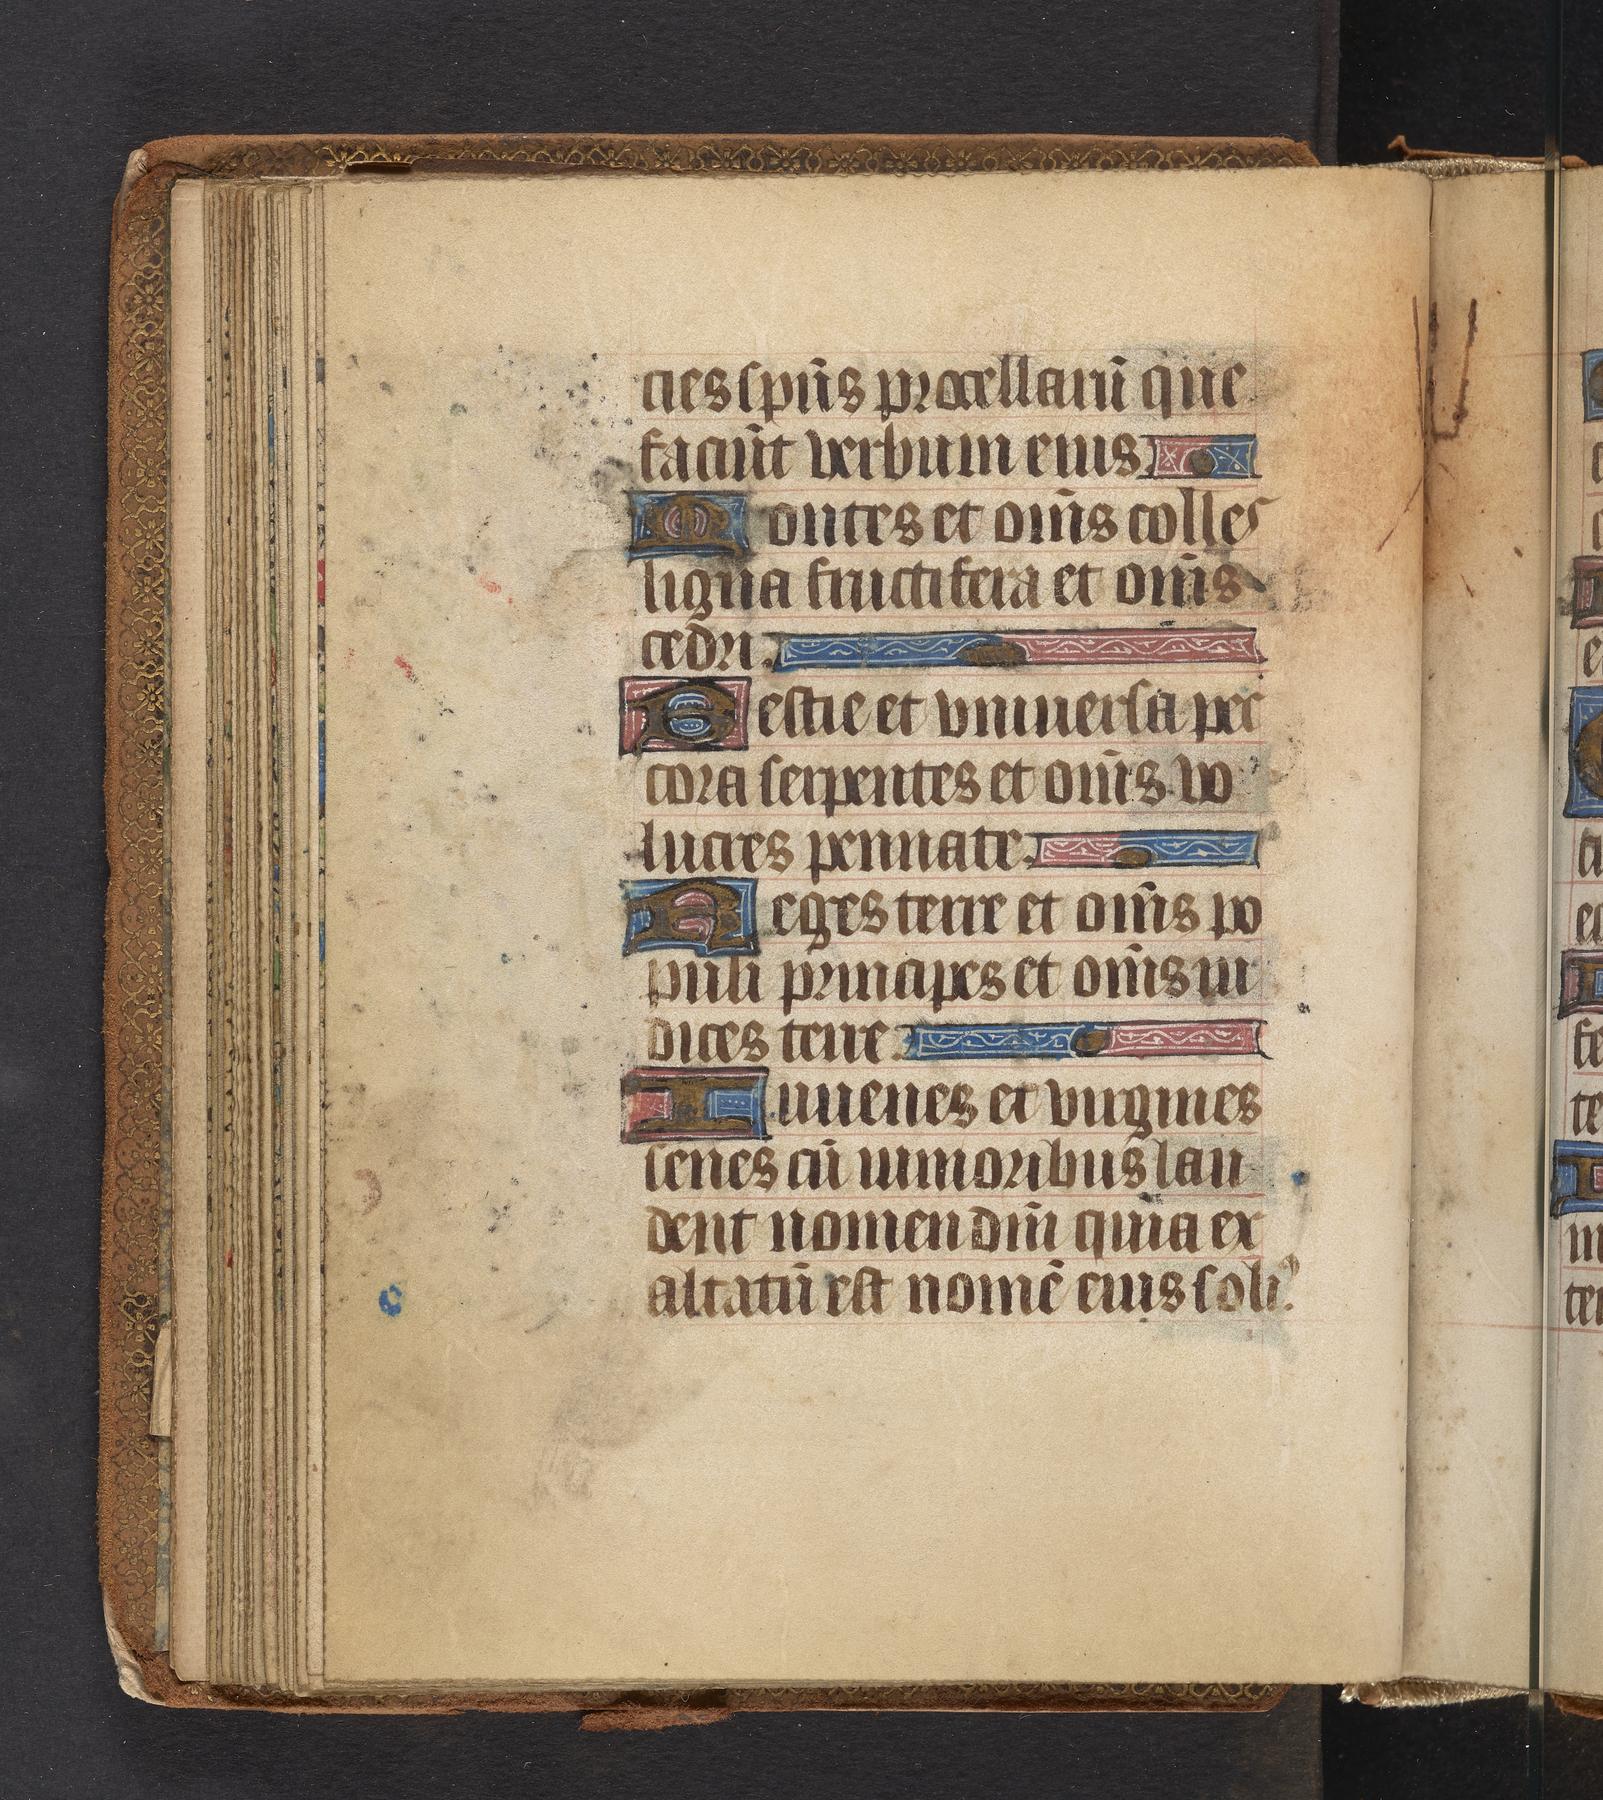 cies sp̄us procellarū que
faciūt verbum eius
Montes et om̄s colles
ligna fructifera et om̄s
cedri.
Bestie et vniuersa pec
cora serpentes et om̄s vo
lucres pennate.
Reges terre et om̄s po
puli principes et om̄s iu
dices terre.
Iuuenes et virgines
senes cū iunioribus lau
dent nomen dn̄i quia ex
altatū est nomē eius soliꝰ